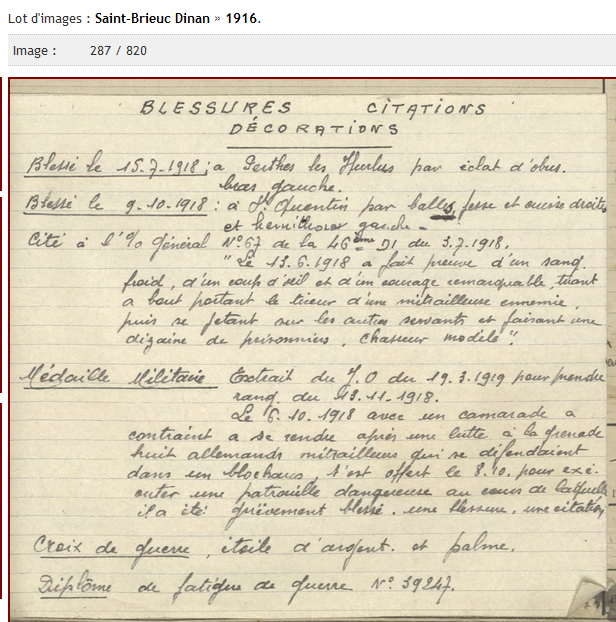 Lot d'images : Saint-Brieuc Dinan » 1916.
Image : 287 / 820
BLESSURES CITATIONS
DÉCORATIONS
Blessé le 15.7.1918 ; a Perthes les Hurlus par éclat d'obus.
bras gauche.
Blessé le 9-10-1918 : a St Quentin par balles, fesse et cuisse droites
et hemithorax gauche -
Cité à l'% Général N° 67 de la 46ème DI du 3.7.1918.
"Le 13.6.1918 a fait preuve d'un sang
froid, d'un coup d'œil et d'un courage remarquable, tirant
a bout portant le tireur d'une mitrailleuse ennemie,
puis se jetant sur les autres servants et faisant une
dizaine de prisonniers, chasseur modèle".
Médaille Militaire Extrait du J.O du 19.3.1919 pour prendre
rang du 13.11.1918.
Le 6.10.1918 avec un camarade a
contraint a se rendre après une lutte à la grenade
huit allemands mitrailleurs qui se défendaient
dans un blockaus, s'est offert le 8.10. pour exé-
cuter une patrouille dangereuse au cours de laquelle
il a été grièvement blessé. une blessure, une citation
Croix de guerre, étoile d'argent. et palme.
Diplôme de fatigue de guerre N° 39247.